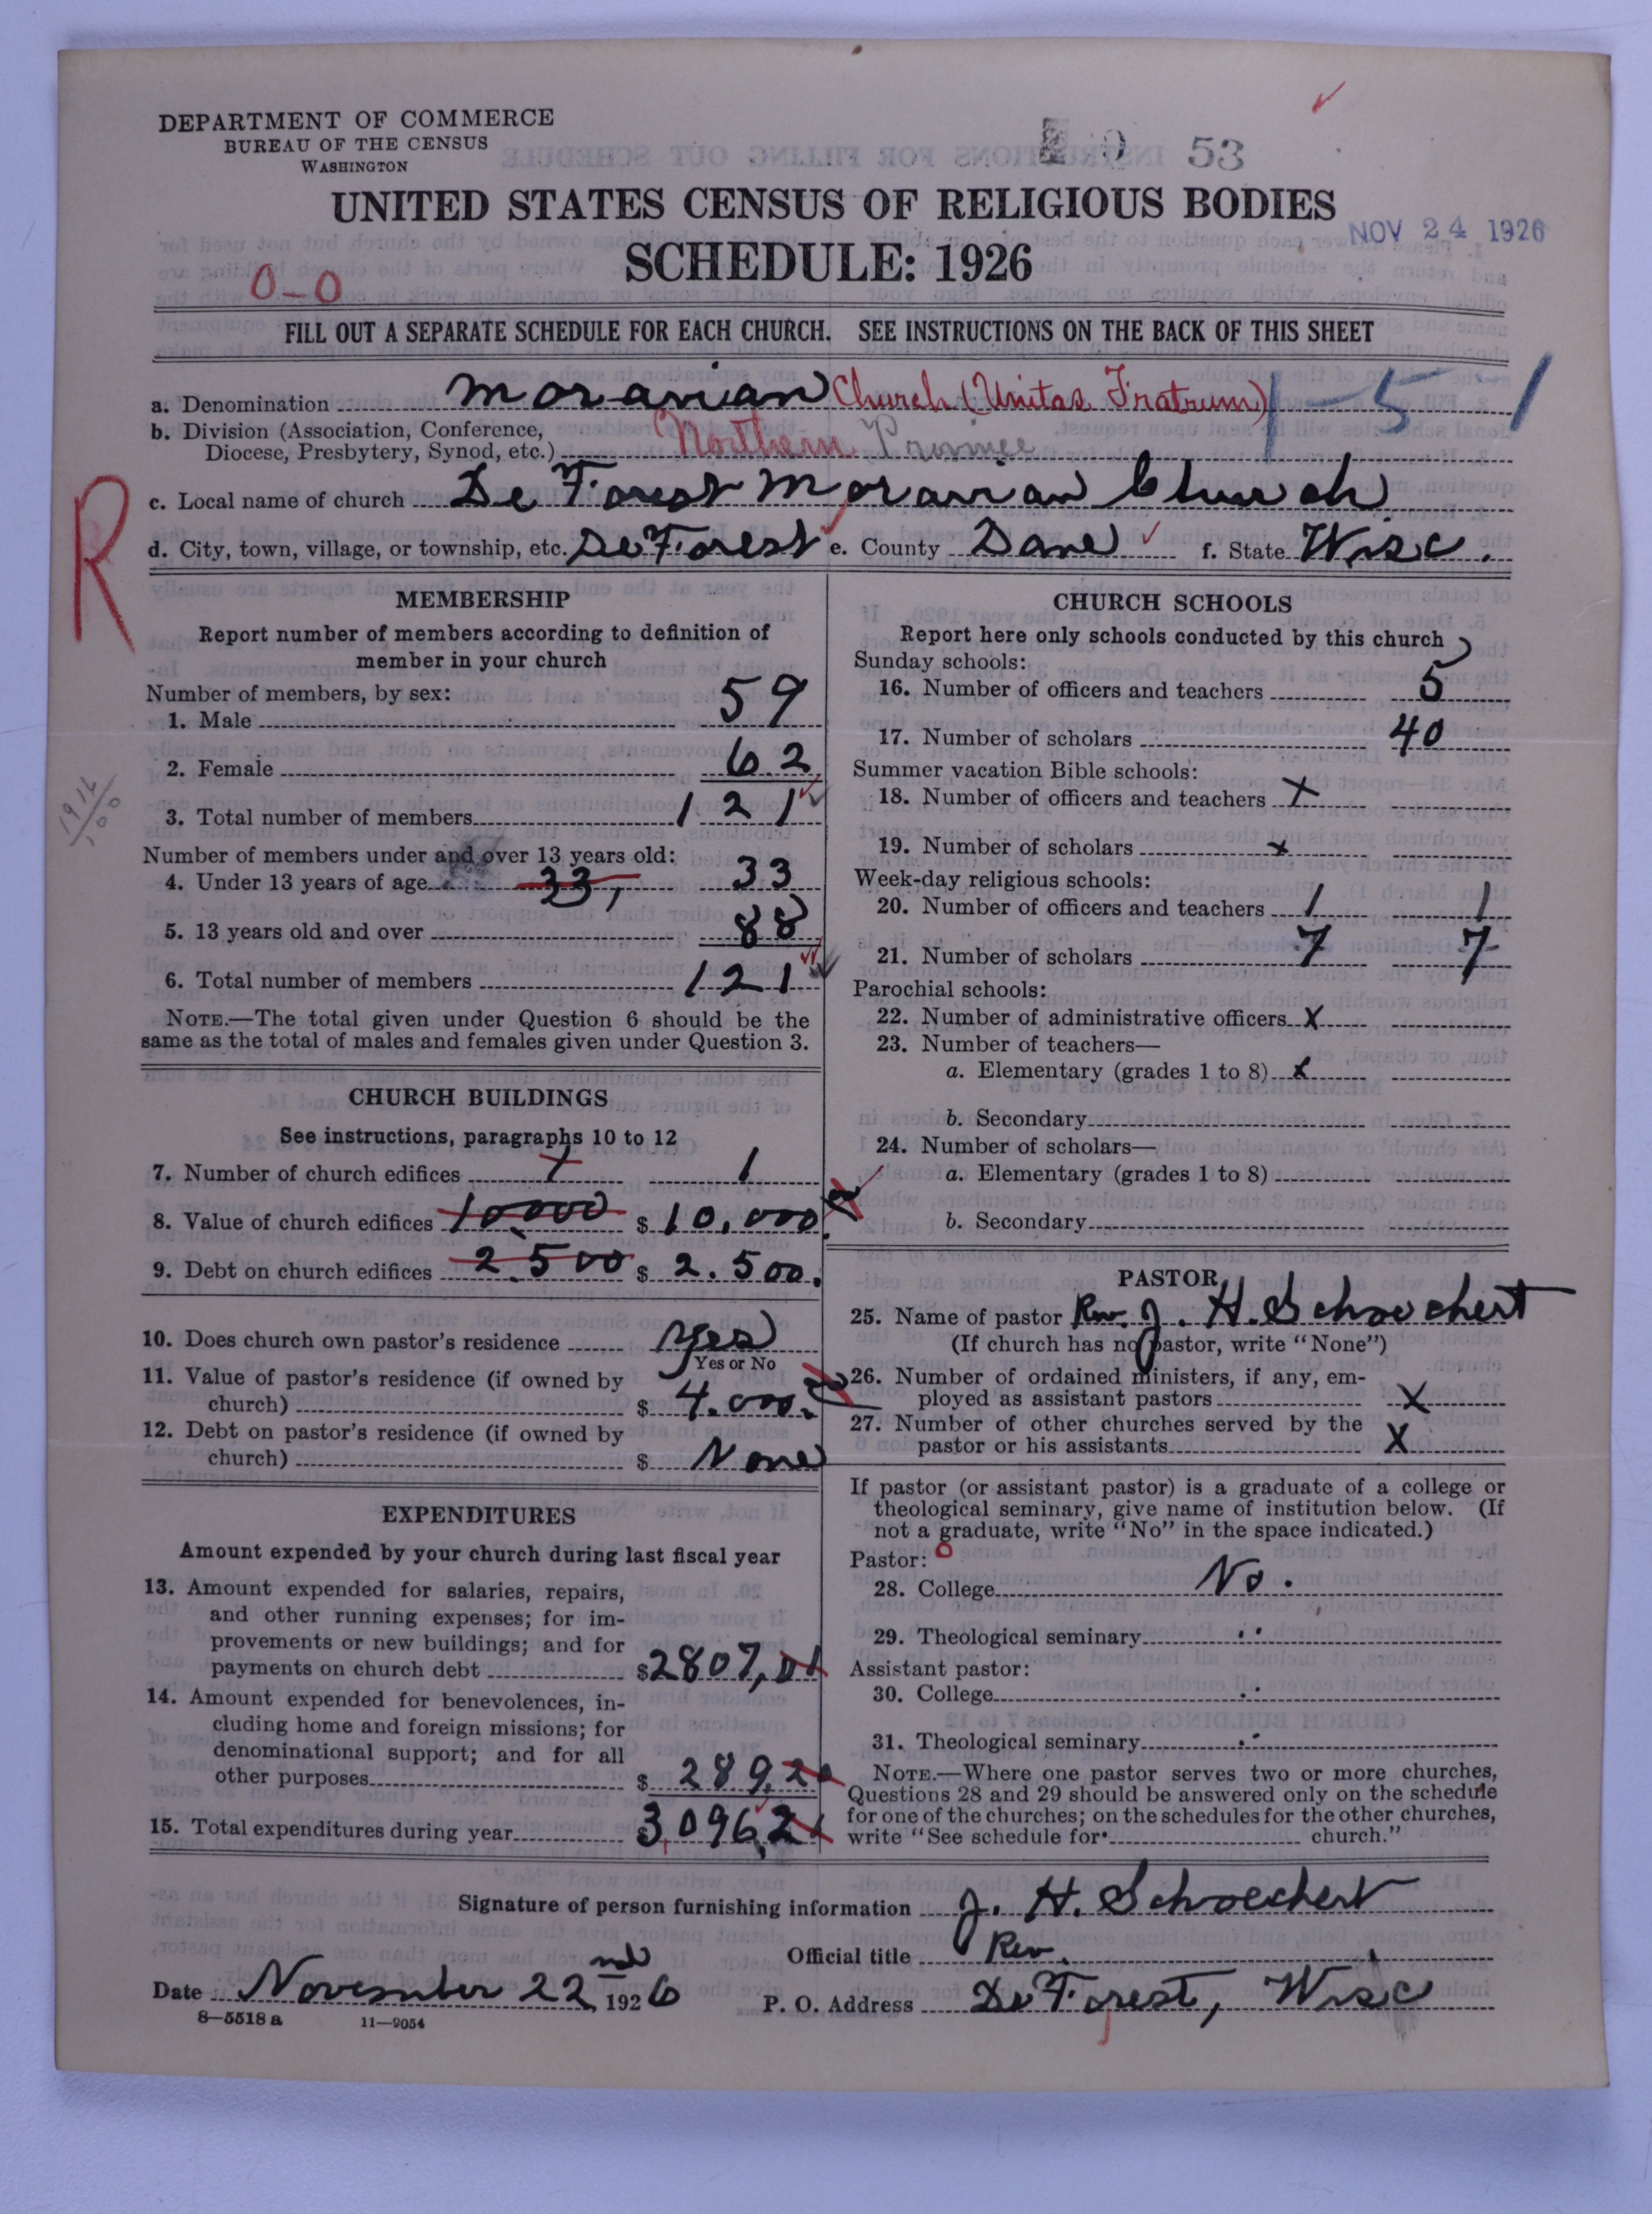 DEPARTMENT OF COMMERCE
BUREAU OF THE CENSUS
WASHINGTON
53
UNITED STATES CENSUS OF RELIGIOUS BODIES
NOV 24 1926
SCHEDULE: 1926
0-0
FILL OUT A SEPARATE SCHEDULE FOR EACH CHURCH. SEE INSTRUCTIONS ON THE BACK OF THIS SHEET
a. Denomination Moravian Church (Unitas Fratrum) 1-5 1
b. Division (Association, Conference, Diocese, Presbytery, Synod, etc.) Northern Province
R
c. Local name of church De Forest Moravian Church
d. City, town, village, or township, etc. DeForest e. County Dane f. State Wisc.
MEMBERSHIP
Report number of members according to definition of
member in your church
Number of members, by sex:
1. Male 59
2. Female 62
3. Total number of members 121
1916
100
Number of members under and over 13 years old:
4. Under 13 years of age 33, 33
5. 13 years old and over 88
6. Total number of members 121
NOTE.—The total given under Question 6 should be the
same as the total of males and females given under Question 3.
CHURCH BUILDINGS
See instructions, paragraphs 10 to 12
7. Number of church edifices 1 1
8. Value of church edifices 10,000 $ 10,000
9. Debt on church edifices 2.500 $ 2.500.
10. Does church own pastor's residence Yes
Yes or No
11. Value of pastor's residence (if owned by
church) $ 4.000.
12. Debt on pastor's residence (if owned by
church) $ None
EXPENDITURES
Amount expended by your church during last fiscal year
13. Amount expended for salaries, repairs,
and other running expenses; for im-
provements or new buildings; and for
payments on church debt $2807,01
14. Amount expended for benevolences, in-
cluding home and foreign missions; for
denominational support; and for all
other purposes $ 289,20
15. Total expenditures during year $3,096,21
CHURCH SCHOOLS
Report here only schools conducted by this church
Sunday schools:
16. Number of officers and teachers 5
17. Number of scholars 40
Summer vacation Bible schools:
18. Number of officers and teachers X
19. Number of scholars x
Week-day religious schools:
20. Number of officers and teachers 1 1
21. Number of scholars 7 7
Parochial schools:
22. Number of administrative officers X
23. Number of teachers—
a. Elementary (grades 1 to 8) x
b. Secondary
24. Number of scholars—
a. Elementary (grades 1 to 8)
b. Secondary
PASTOR
25. Name of pastor Rev. J. H. Schoechert
(If church has no pastor, write "None")
26. Number of ordained ministers, if any, em-
ployed as assistant pastors X
27. Number of other churches served by the
pastor or his assistants X
If pastor (or assistant pastor) is a graduate of a college or
theological seminary, give name of institution below. (If
not a graduate, write "No" in the space indicated.)
Pastor:
28. College No.
29. Theological seminary "
Assistant pastor:
30. College
31. Theological seminary
NOTE.—Where one pastor serves two or more churches,
Questions 28 and 29 should be answered only on the schedule
for one of the churches; on the schedules for the other churches,
write "See schedule for church."
Signature of person furnishing information J. H. Schoechert
Official title Rev.
Date November 22nd 1926
P. O. Address DeForest, Wisc
8—5518 a 11—9054